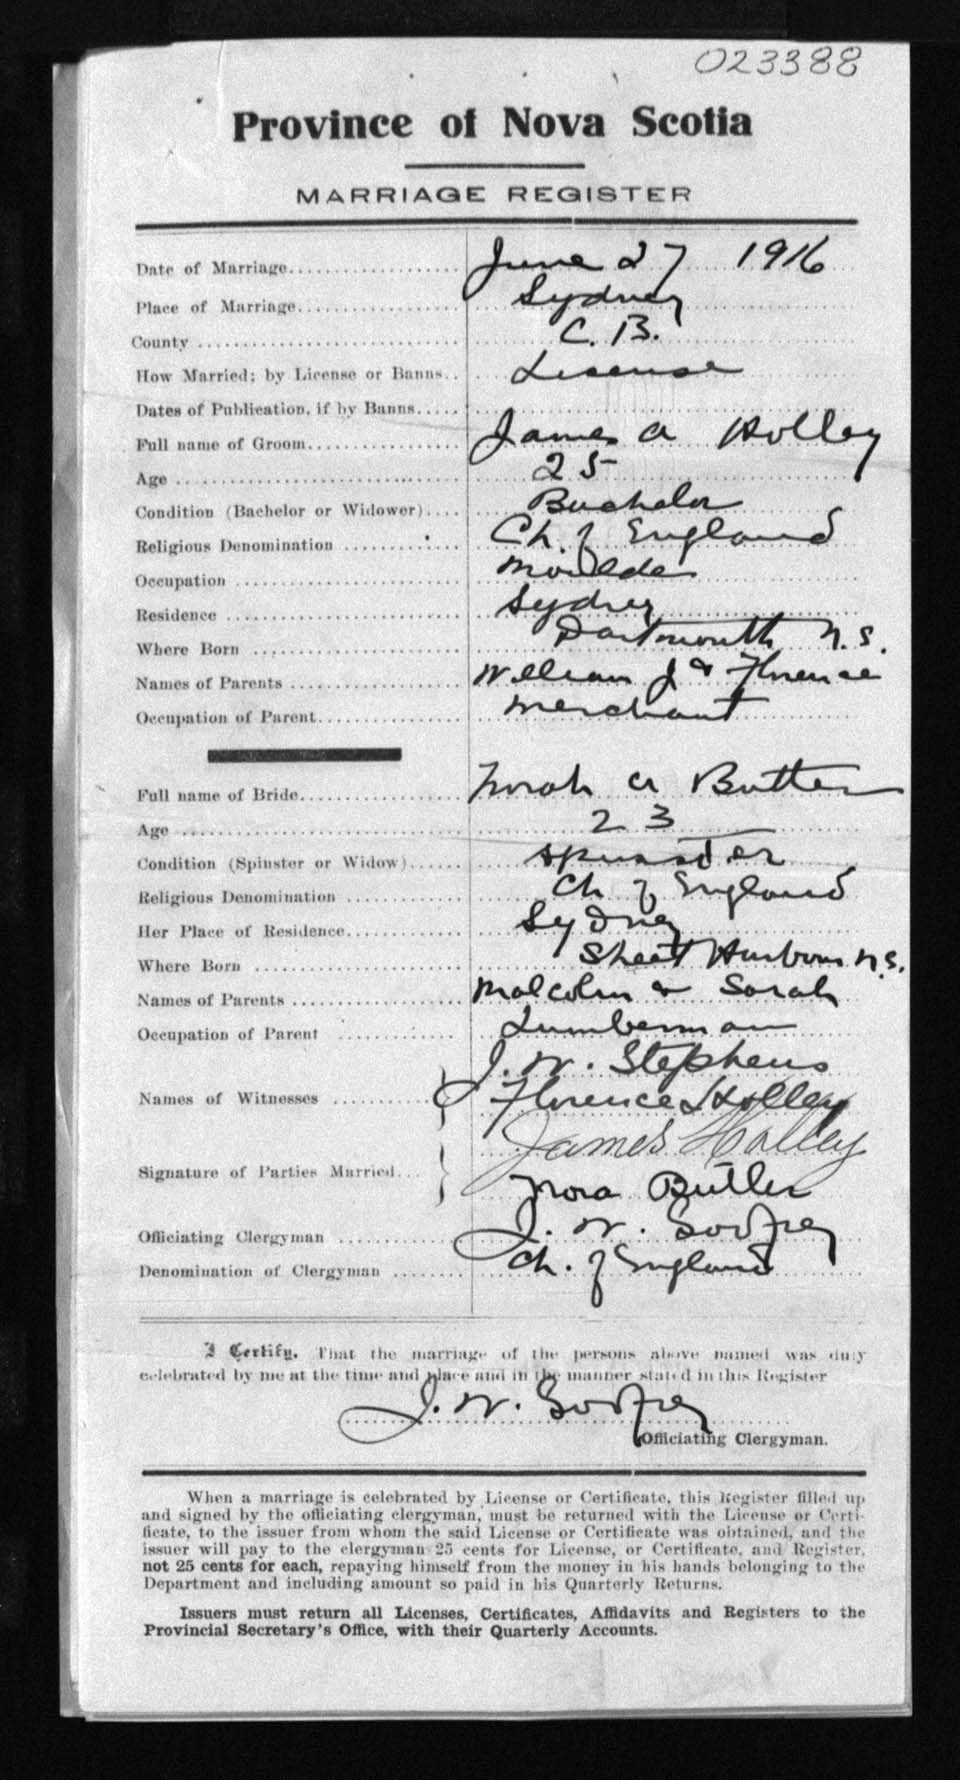 023388
Province of Nova Scotia
MARRIAGE REGISTER
Date of Marriage.................... June 27 1916
Place of Marriage................... Sydney
County ........................... C. B.
How Married; by License or Banns.. License
Dates of Publication, if by Banns.....
Full name of Groom.................. James A Holley
Age ............................. 25
Condition (Bachelor or Widower).... Bachelor
Religious Denomination ............ Ch. of England
Occupation ....................... Moulder
Residence ........................ Sydney
Where Born ...................... Dartmouth N.S.
Names of Parents .................. William J & Florence
Occupation of Parent................ Merchant
Full name of Bride.................. Norah A Butler
Age ............................. 23
Condition (Spinster or Widow)...... Spinster
Religious Denomination ............ Ch of England
Her Place of Residence............. Sydney
Where Born ...................... Sheet Harbour N.S.
Names of Parents .................. Malcolm & Sarah
Occupation of Parent ............. Lumberman
J. W. Stephens
Names of Witnesses ............ Florence Holley
James Holley
Signature of Parties Married...
Nora Butler
Officiating Clergyman ............ J. W. Godfrey
Denomination of Clergyman ........ Ch. of England
I Certify, That the marriage of the persons above named was duly
celebrated by me at the time and place and in the manner stated in this Register
J. W. Godfrey
Officiating Clergyman.
When a marriage is celebrated by License or Certificate, this Register filled up
and signed by the officiating clergyman, must be returned with the License or Certi-
ficate, to the issuer from whom the said License or Certificate was obtained, and the
issuer will pay to the clergyman 25 cents for License, or Certificate, and Register,
not 25 cents for each, repaying himself from the money in his hands belonging to the
Department and including amount so paid in his Quarterly Returns.
Issuers must return all Licenses, Certificates, Affidavits and Registers to the
Provincial Secretary's Office, with their Quarterly Accounts.